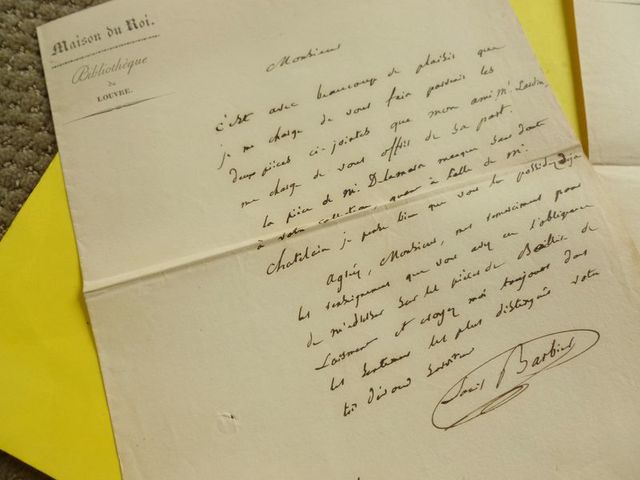 Maison du Roi.
Bibliothèque
du
LOUVRE.
Monsieur
C'est avec beaucoup de plaisir que
je me charge de vous faire parvenir les
deux pièces ci-jointes que mon ami Mr.
me charge de vous offrir de sa part.
la pièce de Mr. Delamarre manque sans doute
à votre collection, quant à celle de Mr.
Chatelain je pense bien que vous la possédez déjà
Agréez, Monsieur, mes remerciemens pour
les renseignemens que vous avez eu l'obligeance
de m'adresser sur les pièces de
et croyez moi toujours dans
les sentimens les plus distingués votre
très dévoué serviteur
Louis Barbier